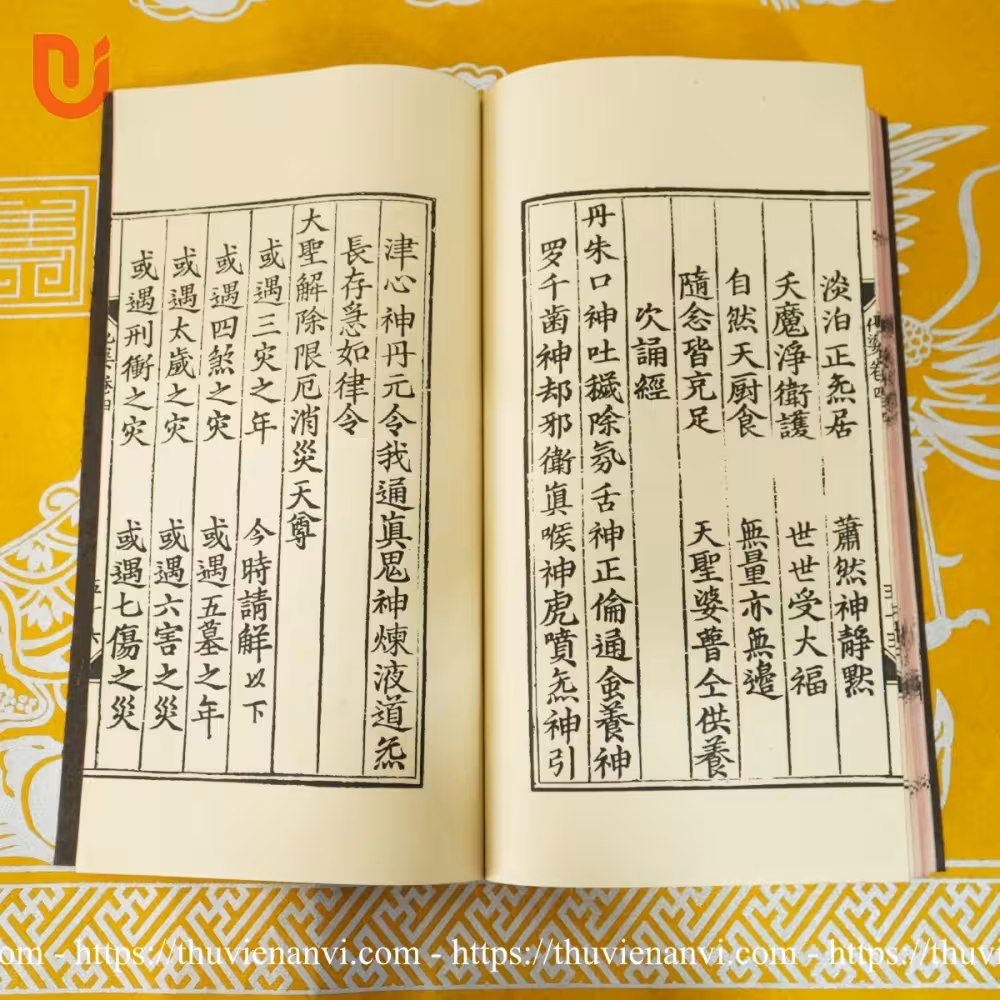 淡泊正炁居 蕭然神靜黙
天魔淨衛護 世世受大福
自然天厨食 無量亦無邊
隨念皆充足 天聖婆普仝供養
次誦經
丹朱口神吐穢除氛舌神正倫通命養神
罗千齒神却邪衛眞喉神虎噴炁神引
津心神丹元令我通眞思神煉液道炁
長存急如律令
大聖解除限厄消災天尊
或遇三灾之年 今時請解以下
或遇四煞之灾 或遇五墓之年
或遇太歲之灾 或遇六害之災
或遇刑衝之灾 或遇七傷之災
https://thuvienanvi.com - https://thuvienanvi.com - https://thuvienanvi.com